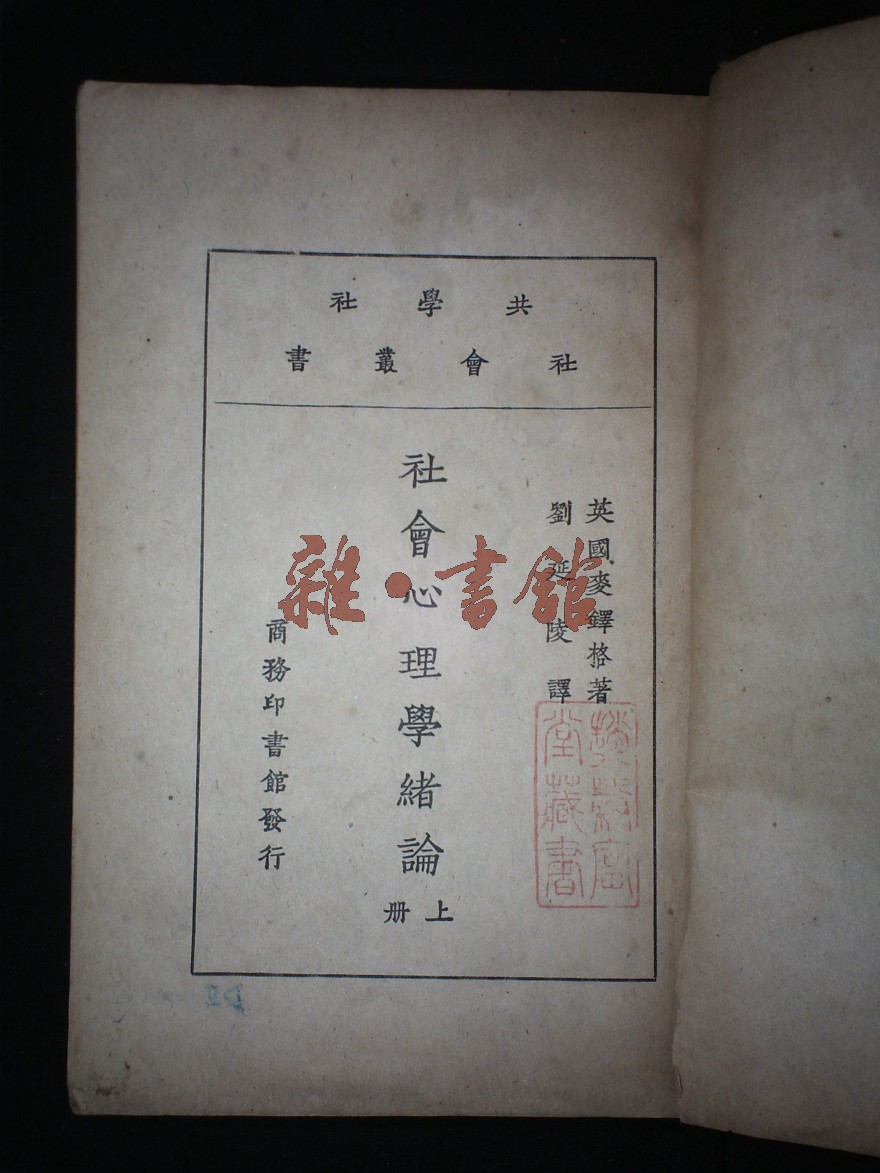 共學社
社會叢書
英國麥鐸格著
劉延陵譯
社會心理學緒論
上册
商務印書館發行
雜·書館
堂藏書